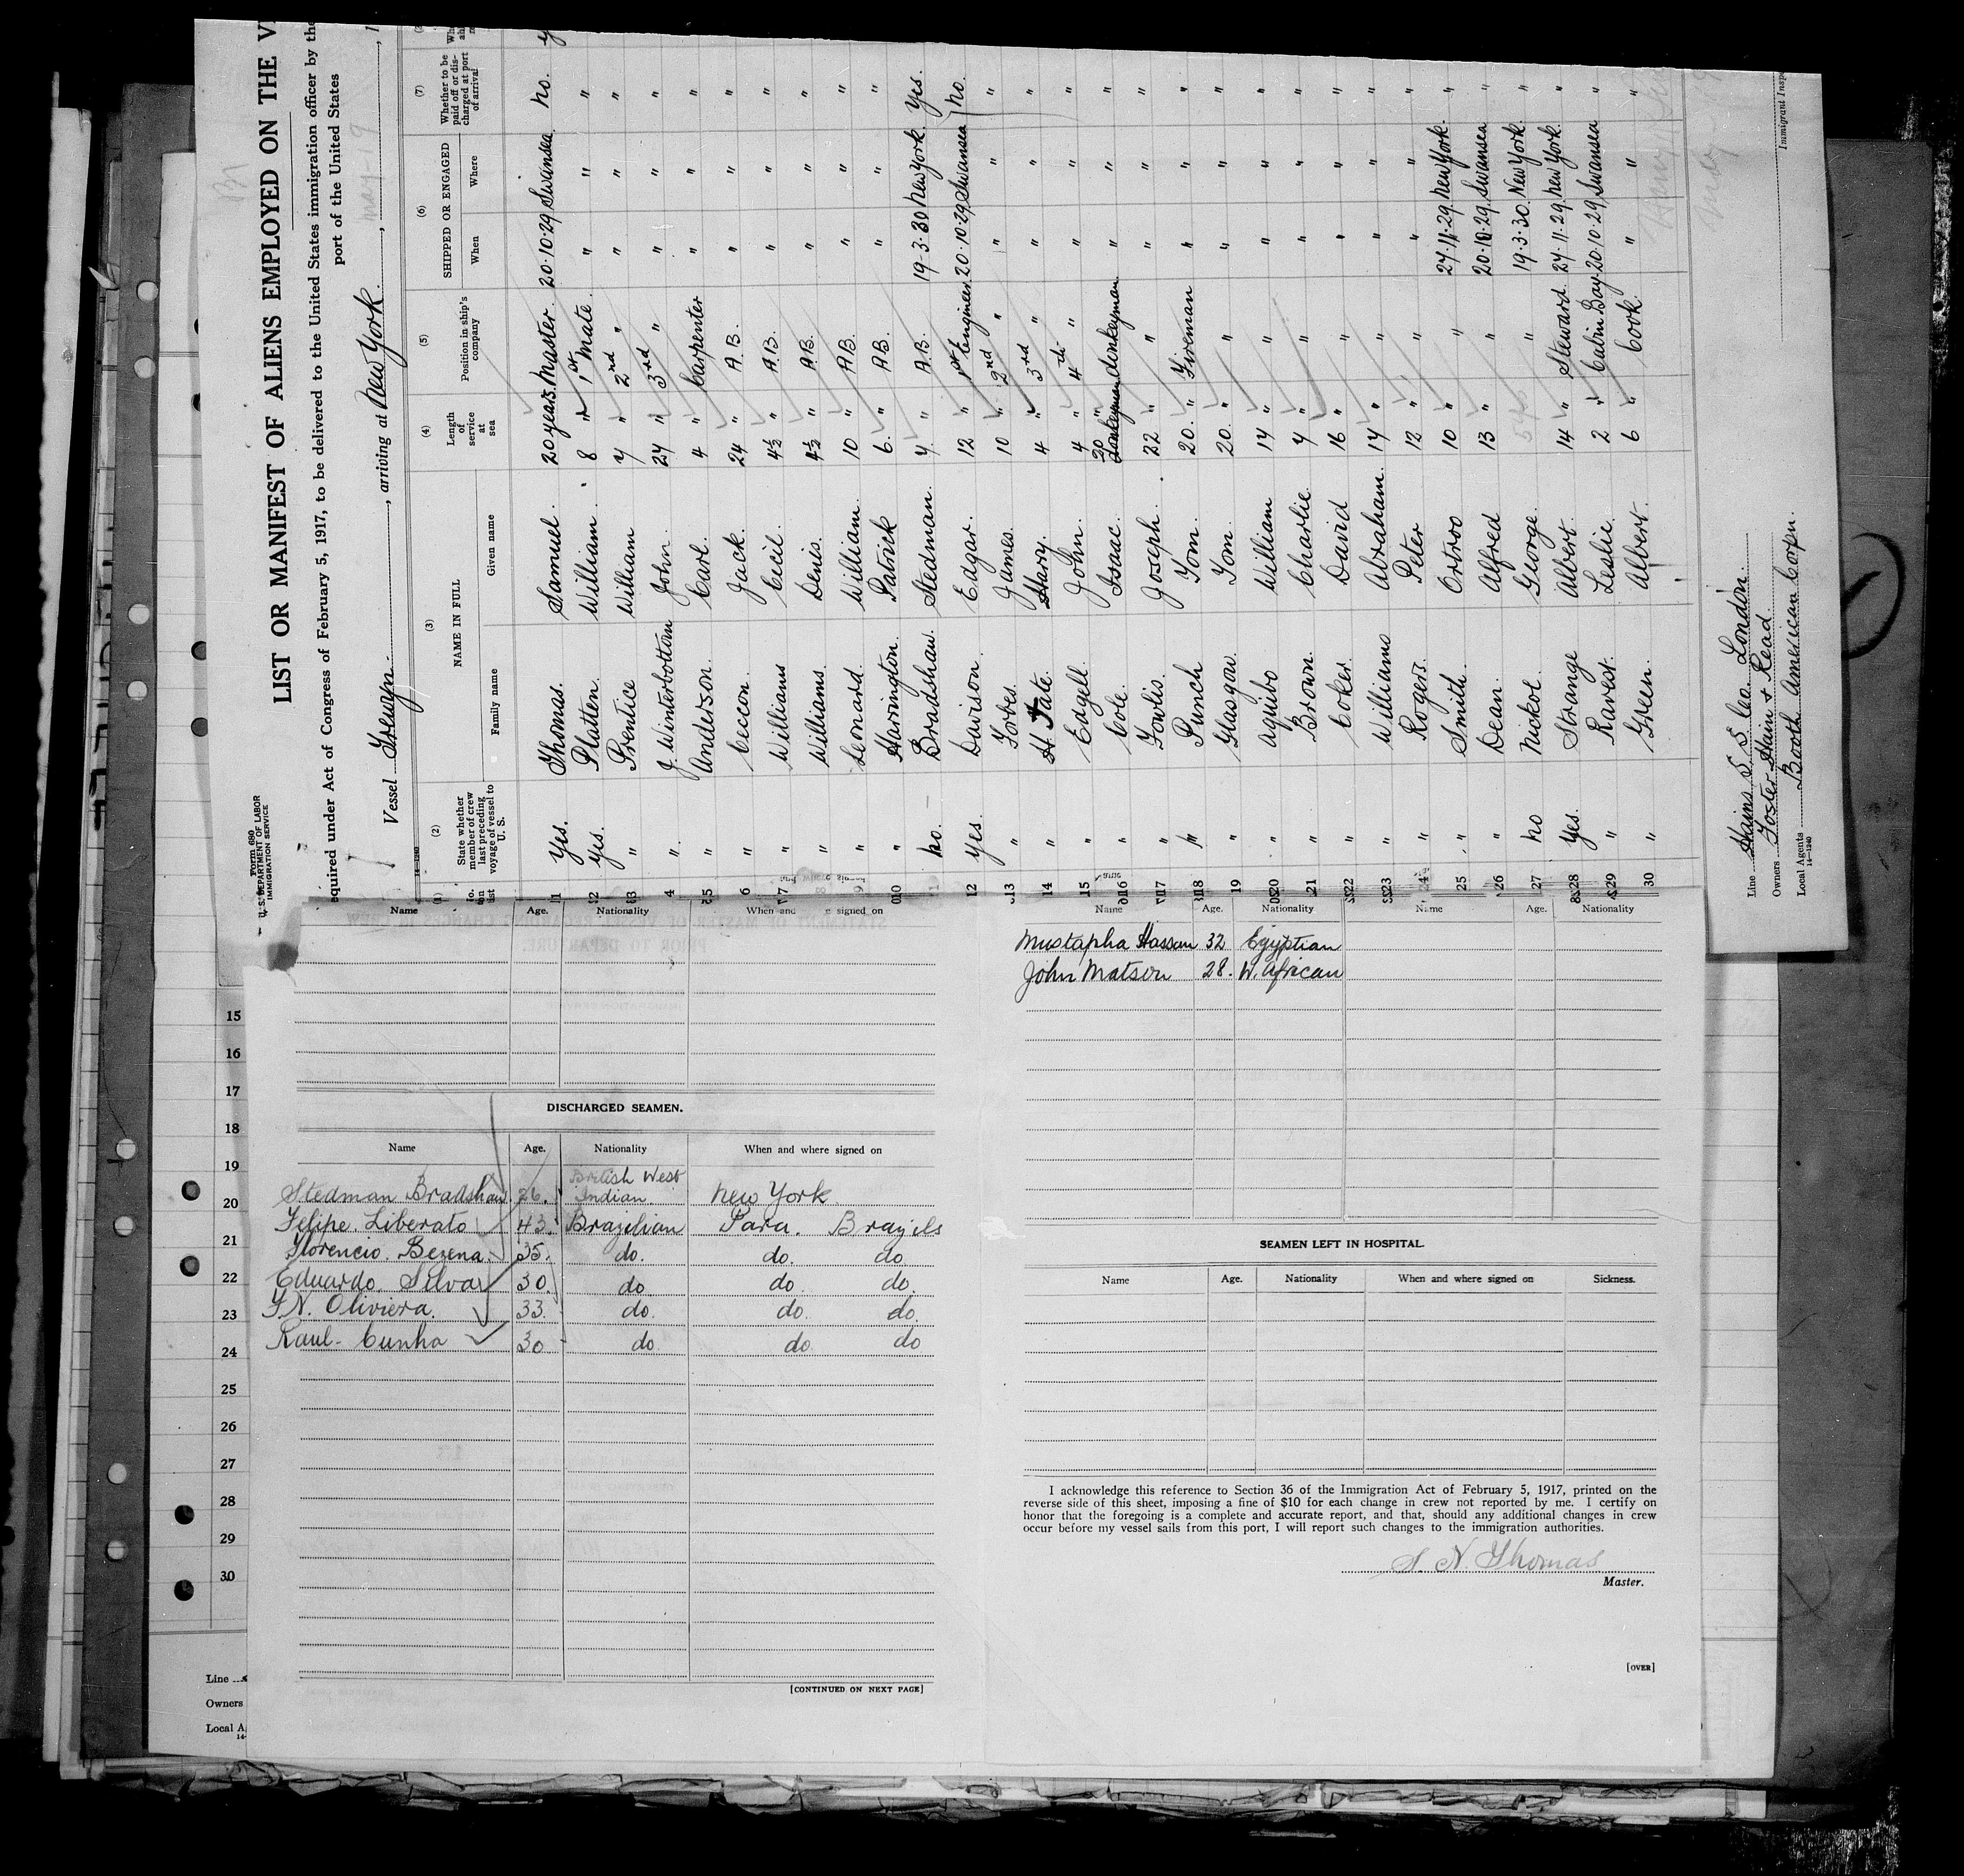 Form 680
U. S. DEPARTMENT OF LABOR
IMMIGRATION SERVICE
LIST OR MANIFEST OF ALIENS EMPLOYED ON THE
equired under Act of Congress of February 5, 1917, to be delivered to the United States immigration officer by the
port of the United States
Vessel Trewyn., arriving at New York., may-19
(2) (3) (4) (5) (6) (7)
State whether member of crew last preceding voyage of vessel to U. S. NAME IN FULL Family name Given name Length of service at sea Position in ship's company SHIPPED OR ENGAGED When Where Whether to be paid off or discharged at port of arrival
1 Yes. Thomas. Samuel. 20 years. Master. 20.10.29 Swansea. no. y
2 Yes. Platten. William. 8 " 1st Mate. " " "
3 " Prentice William 7 " 2nd " " " "
4 " J. Winterbottom John. 24 " 3rd " " " "
5 " Anderson. Carl. 4 " Carpenter " " "
6 " Ceccon. Jack. 24 " A.B. " " "
7 " Williams Cecil. 4½ " A.B. " " "
8 " Williams. Denis. 4½ " A.B. " " "
9 " Leonard. William. 10 " A.B. " " "
10 " Harrington. Patrick 6. " A.B. " " "
11 no. Bradshaw. Stedman. 7. " A.B. 19.3.30 New York. Yes.
12 Yes. Davison. Edgar. 12 " 1st Engineer. 20.10.29 Swansea no.
13 " Forbes. James. 10 " 2nd " " " "
14 " H. Tate. Harry. 4 " 3rd " " " "
15 " Edgell. John. 4 " 4th " " " "
16 " Cole. Isaac. 20 " Donkeyman " " "
17 " Fowlis. Joseph. 22 " " " " "
18 " Punch Tom. 20. " Fireman " " "
19 " Glasgow. Tom. 20. " " " " "
20 " Aquibo William 14 " " " " "
21 " Brown. Charlie. 7 " " " " "
22 " Coker. David 16 " " " " "
23 " Williams Abraham. 14 " " " " "
24 " Rogers. Peter 12 " " " " "
25 " Smith. 10 " " 27.11.29. New York. "
26 " Dean. Alfred 13 " " 20.10.29. Swansea "
27 no Nickol. George. " 19.3.30. New York. "
28 Yes. Strange Albert. 14 " Steward. 27.11.29. New York. "
29 " Leslie. 2 " Cabin Boy. 20.10.29. Swansea "
30 " Green. Albert. 6 " Cook. " " "
Line Hains S. S. Co. London.
Owners Foster Hain & Read.
Local Agents Booth American Corpn.
14—1240
Immigrant Insp
Name Age. Nationality When and signed on
Name Age. Nationality Name Age. Nationality
Mustapha Hassan 32 Egyptian
John Matson 28. W. African
DISCHARGED SEAMEN.
Name Age. Nationality When and where signed on
Stedman Bradshaw 26. British West Indian New York.
Felipe. Liberato 43. Brazilian Para. Brazils
Florencio. Bezena. 35. do. do. do
Eduardo. Silva 30. do do. do.
F.N. Oliviera. 33. do. do. do.
Raul- Cunha 30 do. do. do
[CONTINUED ON NEXT PAGE]
SEAMEN LEFT IN HOSPITAL.
Name Age. Nationality When and where signed on Sickness.
I acknowledge this reference to Section 36 of the Immigration Act of February 5, 1917, printed on the
reverse side of this sheet, imposing a fine of $10 for each change in crew not reported by me. I certify on
honor that the foregoing is a complete and accurate report, and that, should any additional changes in crew
occur before my vessel sails from this port, I will report such changes to the immigration authorities.
S. N. Thomas
Master.
[OVER]
15
16
17
18
19
20
21
22
23
24
25
26
27
28
29
30
Line
Owners
Local A
14-